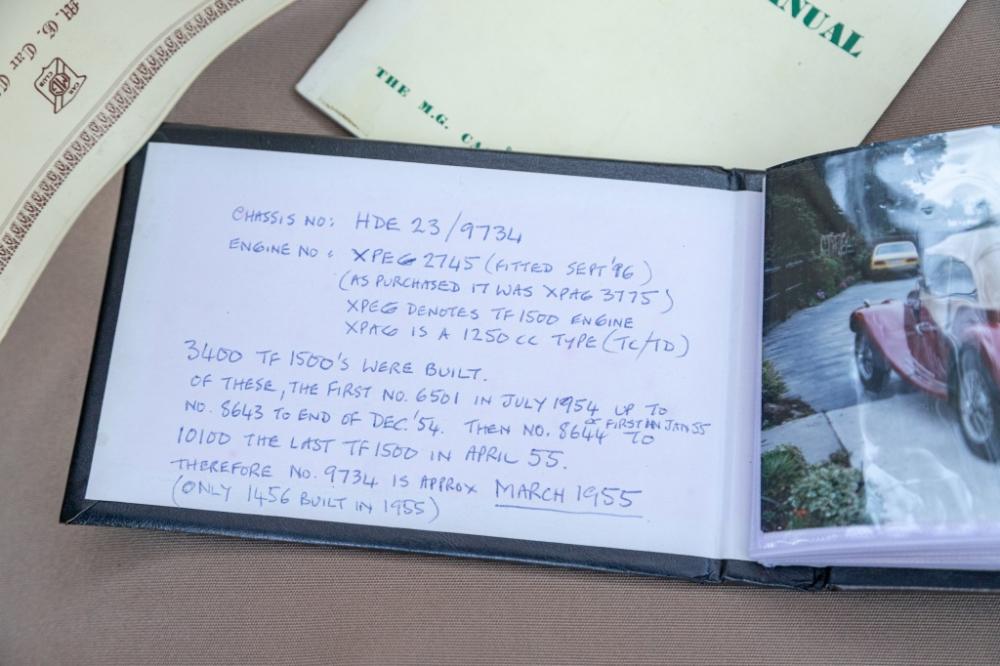 M.G. Car C
CAR
MG
CLUB
NUAL
THE M.G. CA
CHASSIS NO: HDE 23/9734
ENGINE NO: XPEG 2745 (FITTED SEPT '86)
(AS PURCHASED IT WAS XPAG 3775)
XPEG DENOTES TF1500 ENGINE
XPAG IS A 1250 CC TYPE (TC/TD)
3400 TF 1500'S WERE BUILT.
OF THESE, THE FIRST NO. 6501 IN JULY 1954 UP TO
NO. 8643 TO END OF DEC '54. THEN NO. 8644 FIRST IN JAN 55 TO
10100 THE LAST TF1500 IN APRIL 55.
THEREFORE NO. 9734 IS APPROX MARCH 1955
(ONLY 1456 BUILT IN 1955)